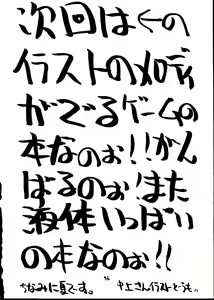 次回は←の
イラストのメロディ
がでるゲームの
本なのぉ!!がん
ばるのぉ!また
液体いっぱい
の本なのぉ!!
ちなみに夏です。 〃 中上さんイラストどうも。